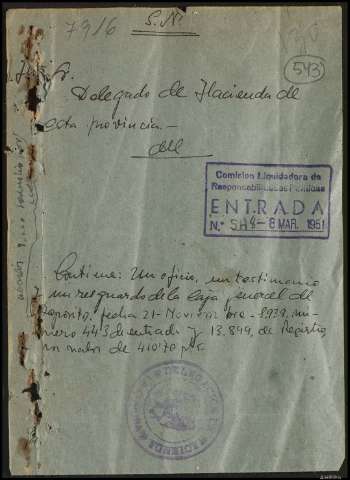 S.N.
79/6
543
Delegado de Hacienda de
esta provincia.—
Comisión Liquidadora de
Responsabilidades Políticas
ENTRADA
N.º 6 MAR. 1951
Contiene: Un oficio, un testimonio
un resguardo de la Caja general de
Depósito, fecha 21 - Noviembre - 1939, nú-
mero 443 de entrada y 13.899, de Registro,
por valor de 410'70 pts.
DELEGACION DE
HACIENDA